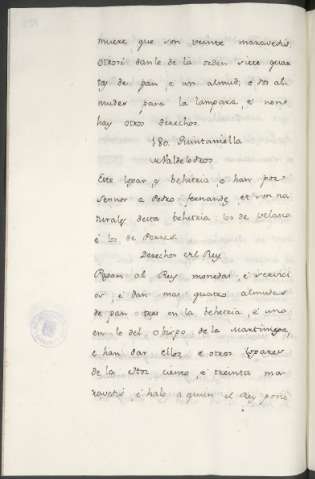 muere que son veinte maravedis
otrosi danle de la orden siete quar
tos de pan e un almud, e dos al
mudes para la lampara, e non
hay otros derechos.
180 Quintaniella
de Valdelostros
Este logar es behetria e han por
sennor a Pedro Fernandez, et son na
turales desta behetria los de Velasco
e los de Porres.
Derechos del Rey
Pagan al Rey monedas, e servici
os, e dan mas quatro almudes
de pan otros en la behetria, e uno
en lo del obispo de la martiniega,
e han dar ellos, e otros logares
de la ciento, e treinta ma
ravedis, e halo a quien el Rey pone